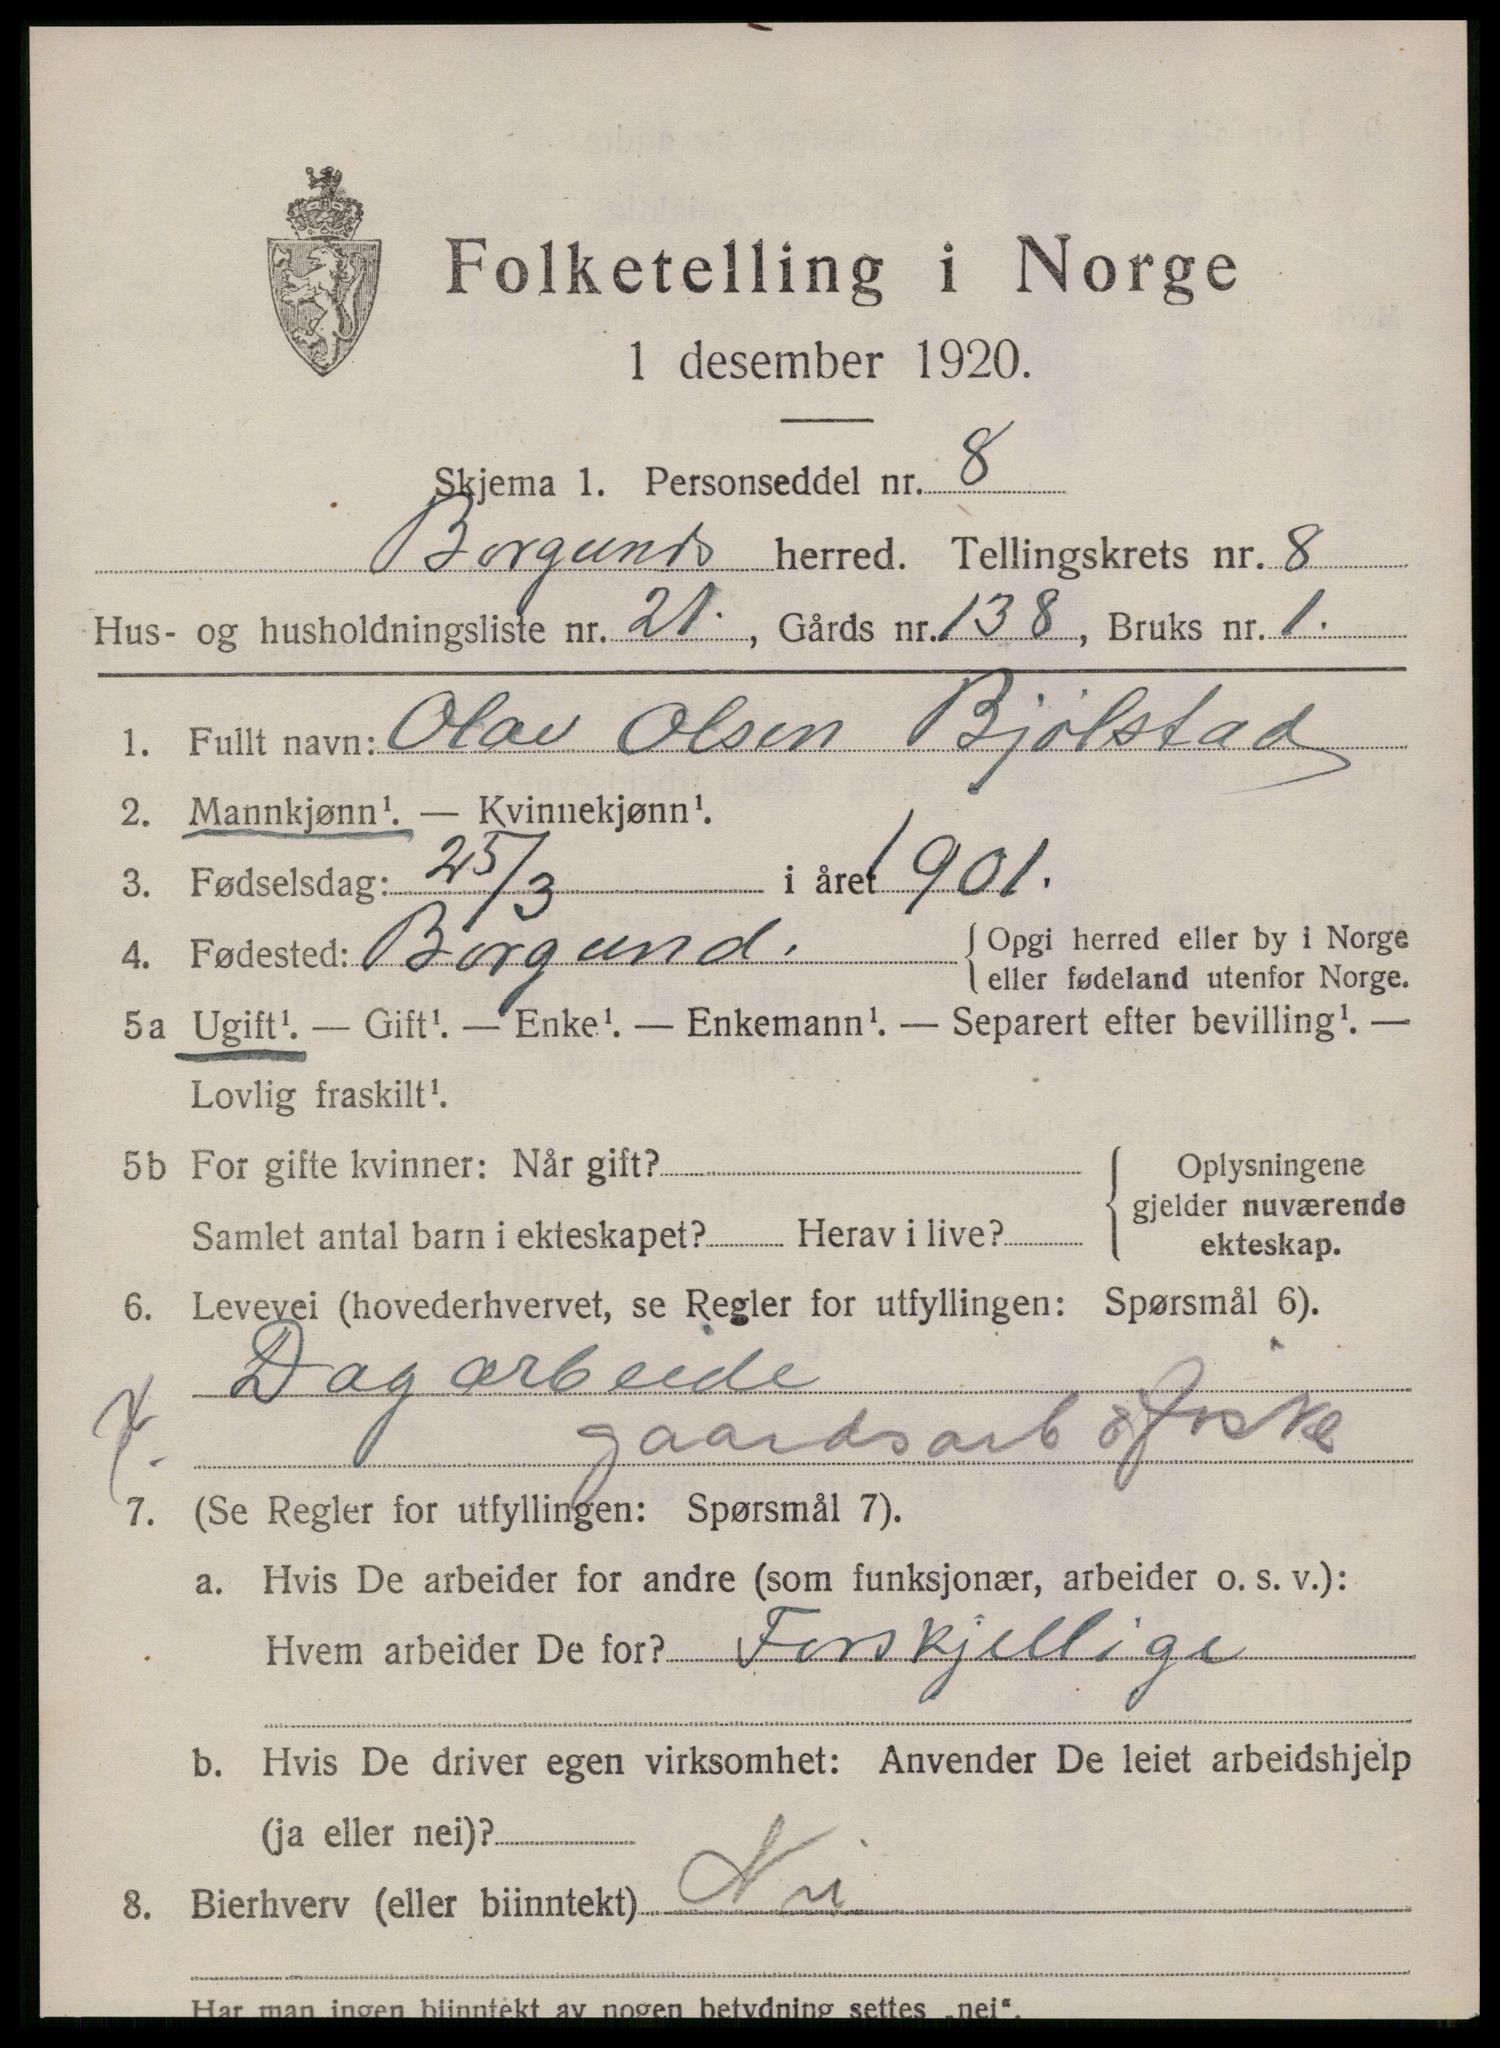 Folketelling i Norge
1 desember 1920.
Skjema 1. Personseddel nr. 8
Borgunds herred. Tellingskrets nr. 8
Hus- og husholdningsliste nr. 21., Gårds nr. 138, Bruks nr. 1.
1. Fullt navn: Olav Olsen Bjølstad
2. Mannkjønn¹. — Kvinnekjønn¹.
3. Fødselsdag: 25/3 i året 1901.
4. Fødested: Borgund. { Opgi herred eller by i Norge
eller fødeland utenfor Norge.
5a Ugift¹. — Gift¹. — Enke¹. — Enkemann¹. — Separert efter bevilling¹. —
Lovlig fraskilt¹.
5b For gifte kvinner: Når gift?
Samlet antal barn i ekteskapet? Herav i live?
{ Oplysningene
gjelder nuværende
ekteskap.
6. Levevei (hovederhvervet, se Regler for utfyllingen: Spørsmål 6).
Dagarbeide
gaardsarb & fiske
7. (Se Regler for utfyllingen: Spørsmål 7).
a. Hvis De arbeider for andre (som funksjonær, arbeider o. s. v.):
Hvem arbeider De for? Forskjellige
b. Hvis De driver egen virksomhet: Anvender De leiet arbeidshjelp
(ja eller nei)?
8. Bierhverv (eller biinntekt) Nei
Har man ingen biinntekt av nogen betydning settes „nei“.